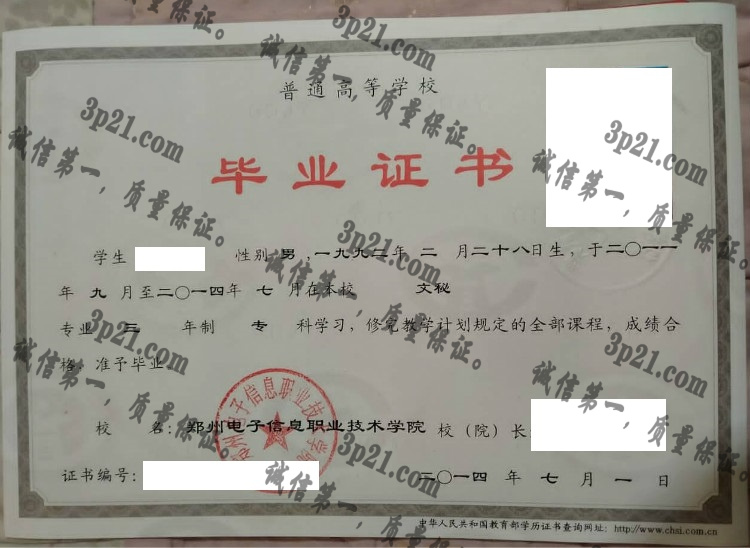 普通高等学校
毕业证书
学生 性别 男 ,一九九二年 二 月二十八日生，于二〇一一
年 九 月至二〇一四年 七 月在本校 文秘
专业 三 年制 专 科学习，修完教学计划规定的全部课程，成绩合
格，准予毕业。
校 名：郑州电子信息职业技术学院 校（院）长
证书编号： 二〇一四 年 七 月 一 日
中华人民共和国教育部学历证书查询网址：http://www.chsi.com.cn
郑州电子信息职业技术学院
3p21.com
诚信第一，质量保证。
3p21.com
诚信第一，质量保证。
3p21.com
诚信第一，质量保证。
3p21.com
诚信第一，质量保证。
3p21.com
诚信第一，质量保证。
3p21.com
诚信第一，质量保证。
3p21.com
诚信第一，质量保证。
质量保证。